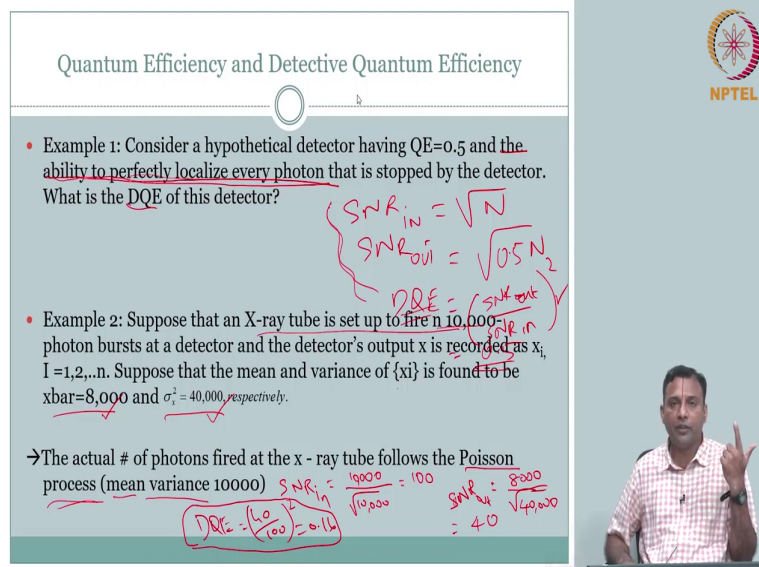 Quantum Efficiency and Detective Quantum Efficiency
NPTEL
• Example 1: Consider a hypothetical detector having QE=0.5 and the
ability to perfectly localize every photon that is stopped by the detector.
What is the DQE of this detector?
SNR_IN = √N
SNR_out = √0.5N
DQE = (SNR out / SNR in)²
= 0.5
• Example 2: Suppose that an X-ray tube is set up to fire n 10,000-
photon bursts at a detector and the detector's output x is recorded as xi,
I =1,2,..n. Suppose that the mean and variance of {xi} is found to be
xbar=8,000 and σx² = 40,000, respectively.
→The actual # of photons fired at the x - ray tube follows the Poisson
process (mean variance 10000)
SNR_in = 10000 / √10,000 = 100
SNR_out = 8000 / √40,000
= 40
DQE = (40/100)² = 0.16